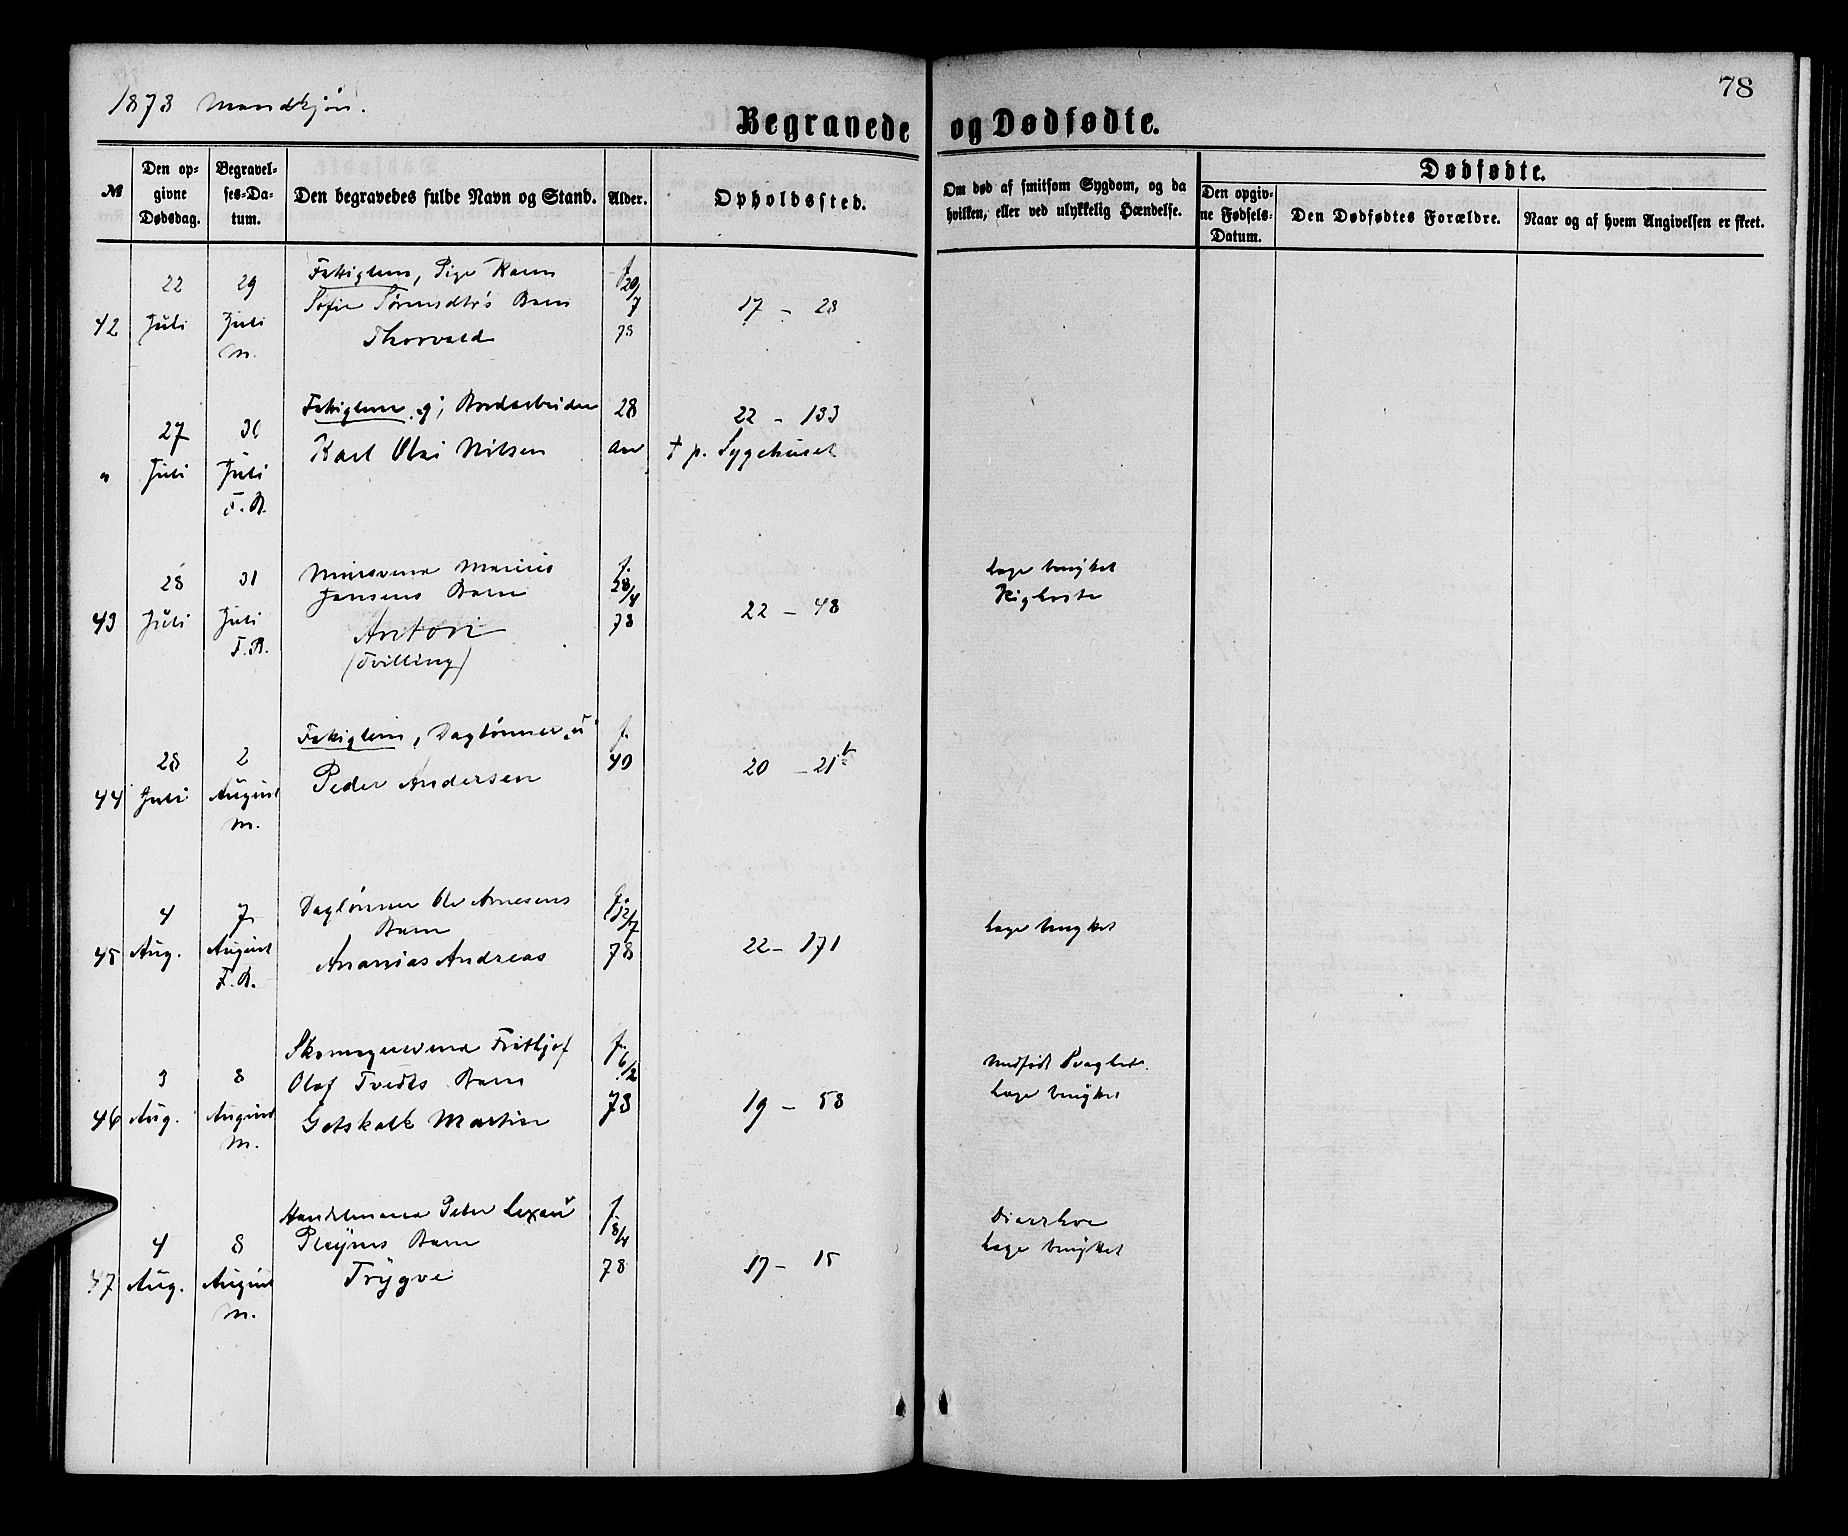 78
1878 Mandkjøn.
Begravede og Dødfødte.
№
Den opgivne Dødsdag.
Begravelses-Datum.
Den begravedes fulde Navn og Stand.
Alder.
Opholdssted.
Om død af smitsom Sygdom, og da hvilken, eller ved ulykkelig Hændelse.
Dødfødte.
Den opgivne Fødsels-Datum.
Den Dødfødtes Forældre.
Naar og af hvem Angivelsen er skeet.
22 29 Fattiglem, Pige Karen f. 20/7
42 Juli Juli Sofie Sørensdtr's Barn 17 - 28
m. Thorvald 78
Fattiglem, g; Bordarbeider 28 22 - 133
27 31 Karl Olai Nilsen Aar † p. Sygehuset
" Juli Juli
F.B.
28 31 Murersvend Marius f. 28/4 Læge benyttet
Jensens Barn Kighoste
43 Juli Juli Anton 78 22 - 48
F.B. (Tvilling)
Fattiglem, Daglønner, u f.
28 2 Peder Andersen 40 20 - 21b
44 Juli August
m.
4 7 Daglønner Ole Arnesens f. 12/7 Læge benyttet
Barn
45 Aug. August Ananias Andreas 78 22 - 171
F.B.
Skomagersvend Fridthjof f. 6/2 Medfødt Svaghed.
3 8 Olaf Tvedts Barn Læge benyttet
46 Aug. August Gotskalk Martin 78 19 - 58
m.
Handelsmand Peter Lexau f. 18/4 Diarrhoe
4 8 Pleyms Barn Læge benyttet
47 Aug. August Trygve 78 17 - 15
m.